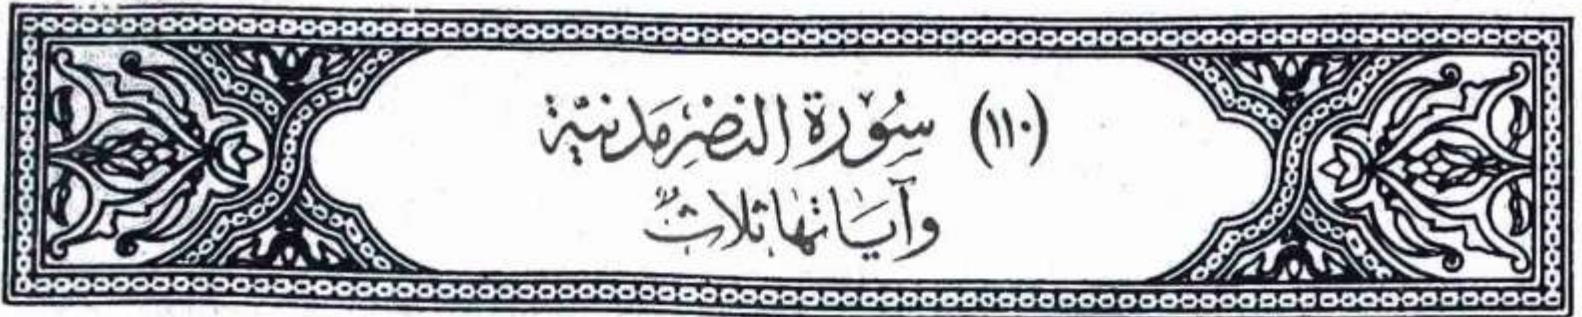 (١١٠) سُورَة النصْرِ مَدَنِيَّة
وَآيَاتهَا ثَلَاثٌ